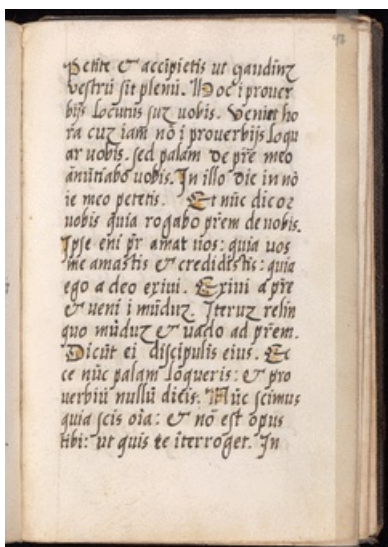 42
Petite & accipietis ut gaudiuʒ
vestrū sit plenū. Hoc i prover
bijs locutus suʒ vobis. Veniet ho
ra cuʒ iam nō i proverbijs loqu
ar vobis. sed palam de pr̄e meo
ānūtiabo vobis. In illo die in nō
ie meo petetis. Et nūc dicoʒ
vobis quia rogabo pr̄em de vobis.
Ipse eni pr̄ amat vos: quia vos
me amastis & credidistis: quia
ego a deo exivi. Exivi a pr̄e
& veni i mūduʒ. Iteruʒ relin
quo mūduʒ & vado ad pr̄em.
Dicūt ei discipuli eius. Ec
ce nūc palam lōqueris: & pro
verbiū nullū dicis. Nūc scimus
quia scis oīa: & nō est opus
tibi: ut quis te iterroget. In